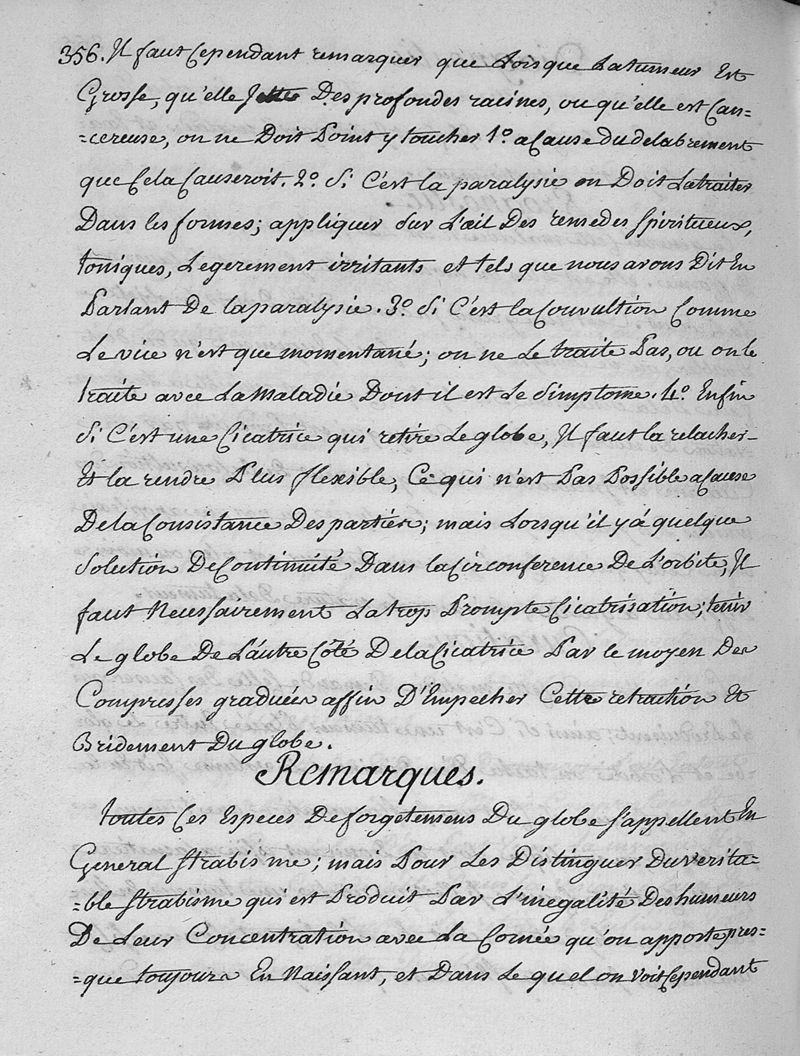 356. Il faut Cependant remarquer que Lorsque La tumeur Est
Grosse, qu'elle Jette Des profondes racines, ou qu'elle est Can-
=cereuse, on ne Doit Point y toucher 1.º a Cause du delabrement
que Cela Causeroit. 2.º Si C'est la paralysie on Doit La traiter
Dans les formes; appliquer sur L'œil Des remedes spiritueux,
toniques, Legerement irritants et tels que nous avons Dit En
Parlant De la paralysie. 3.º Si C'est la Convultion Comme
Le vice n'est que momentané; on ne Le traite Pas, ou on le
traite avec La Maladie Dont il est Le Simptome. 4.º Enfin
Si C'est une Cicatrice qui retire Le globe, Il faut la relacher
Et la rendre Plus flexible, Ce qui n'est Pas Possible a Cause
De la Consistance Des parties; mais Lorsqu'il y a quelque
Solution De Continuité Dans la Circonference De L'orbite, Il
faut Necessairement La trop Prompte Cicatrisation; tenir
Le globe De L'autre Côté De la Cicatrice Par le moyen Des
Compresses graduées affin D'Empecher Cette retraction Et
Bridement Du globe.
Remarques.
toutes Ces Especes De forgetemens Du globe s'appellent En
General strabisme; mais Pour Les Distinguer Du verita-
=ble strabisme qui est Produit Par L'inegalité Des humeurs
De Leur Concentration avec La Cornée qu'on apporte pres-
=que toujours En Naissant, et Dans Le quel on voit Cependant